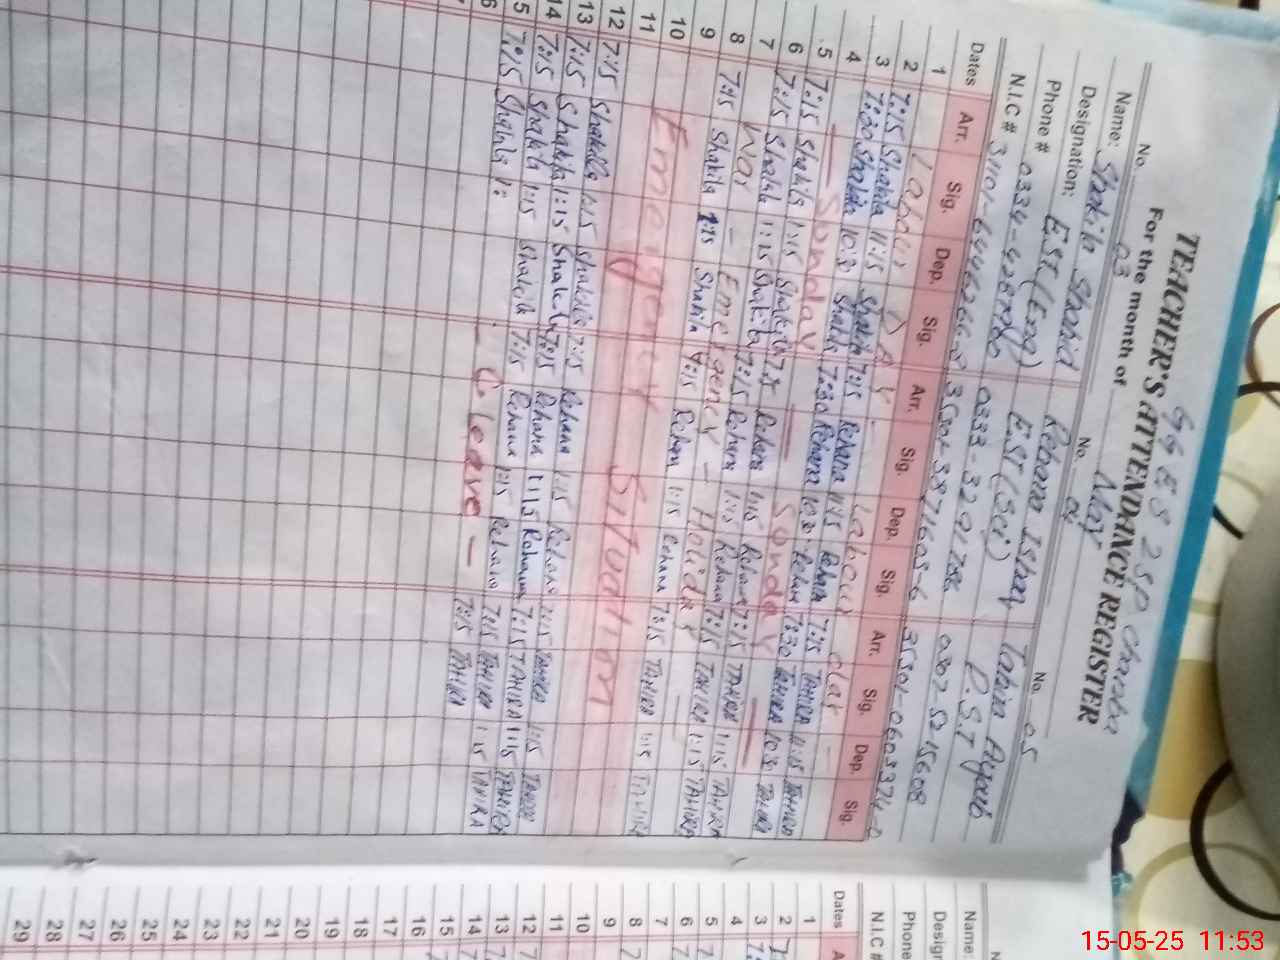 GGES 2SP Chawka
TEACHER'S ATTENDANCE REGISTER
For the month of May
No. 03 No. 04 No. 05
Name: Shakila Shahid Rehana Islam Tahira Ayyub
Designation: EST (Eng) EST (Sci) P.S.T
Phone #
N.I.C #
Dates Arr. Sig. Dep. Sig. Arr. Sig. Dep. Sig. Arr. Sig. Dep. Sig.
1 Labour DAY - Labour day -
2 7:15 Shakila 11:15 Shakila 7:15 Rehana 11:15 Rehana 7:15 TAHIRA 11:15 TAHIRA
3 7:30 Shakila 10:30 Shakila 7:30 Rehana 10:30 Rehana 7:30 TAHIRA 10:30 TAHIRA
4 — Sunday — Sunday —
5 7:15 Shakila 1:15 Shakila 7:15 Rehana 1:15 Rehana 7:15 TAHIRA 1:15 TAHIRA
6 7:15 Shakila 1:15 Shakila 7:15 Rehana 1:15 Rehana 7:15 TAHIRA 1:15 TAHIRA
7 War - Emergency - Holiday —
8 7:15 Shakila 1:15 Shakila 7:15 Rehana 1:15 Rehana 7:15 TAHIRA 1:15 TAHIRA
9
10 Emergency Situation
11
12 7:15 Shakila 1:15 Shakila 7:15 Rehana 1:15 Rehana 7:15 TAHIRA 1:15 TAHIRA
13 7:15 Shakila 1:15 Shakila 7:15 Rehana 1:15 Rehana 7:15 TAHIRA 1:15 TAHIRA
14 7:15 Shakila 1:15 Shakila 7:15 Rehana 1:15 Rehana 7:15 TAHIRA 1:15 TAHIRA
5 7:15 Shakila 1: - C. leave — 7:15 TAHIRA
6
Name:
Design
Phone
N.I.C #
Dates A
1
2
3
4
5
6
7
8
9
10
11
12
13
14
15
16
17
18
19
20
21
22
23
24
25
26
27
28
29
15-05-25 11:53